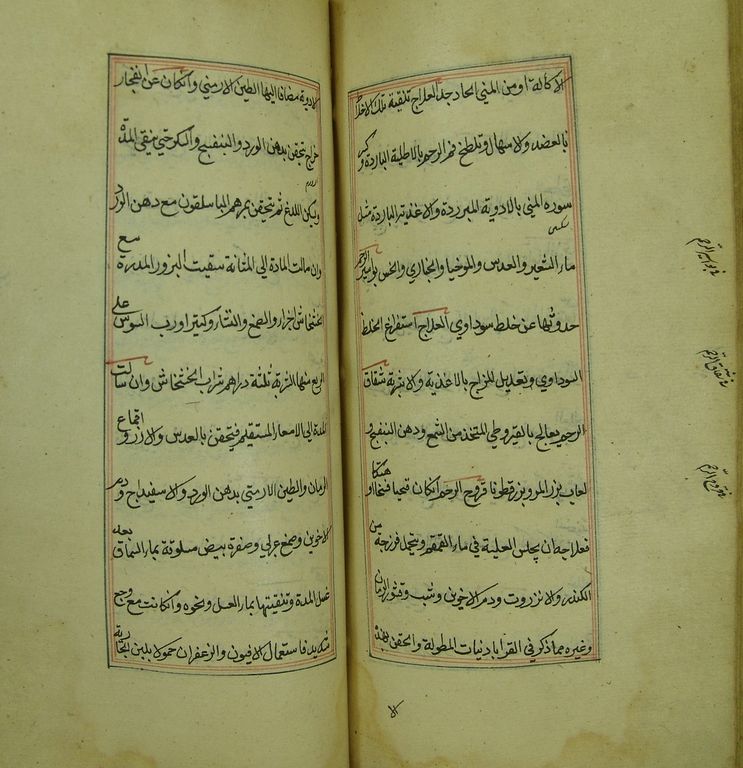 الاكالة او من المني الحاد جدا العلاج تنقية تلك الاخلاط
بالفصد والاسهال وتلطخ فم الرحم بالاطلية الباردة وكسر
سورة المني بالادوية المبردة والاغذية الباردة مثل
ماء الشعير والعدس والملوخيا والخبازي والخس بواسير الرحم
حدوثها عن خلط سوداوي العلاج استفراغ الخلط
السوداوي وتعديل المزاج بالاغذية والاشربة شقاق
الرحم يعالج بالقيروطي المتخذ من الشمع ودهن البنفسج و
لعاب بزر المرو وبزر قطونا قروح الرحم ان كان قيحيا
فعلاجه ان يجلس العليلة في ماء القمقم ويتحمل فرزجة من
الكندر والانزروت ودم الاخوين وشب وقشور الرمان
وغيره مما ذكر في القرابادينات المطولة والحقن بهذه
الا
في بواسير الرحم
في شقاق الرحم
في قروح الرحم
الادوية مضافا اليها الطين الارمني وان كان عن انفجار
خراج تحقن بدهن الورد والبنفسج والسكر حتى ينقي المدة
ويسكن اللذع ثم تحقن بمرهم الباسلقون مع دهن الورد
وان مالت المادة الى المثانة سقيت البزور المدرة مع
الخشخاش والصمغ والنشا وكثيرا ورب السوس على
الربع منها الشربة ثلثة دراهم بشراب الخشخاش وان سالت
المدة الى الامعاء المستقيم فيحقن بالعدس والارز واقماع
الرمان والطين الارمني بدهن الورد والاسفيداج ودم
الاخوين وصمغ عربي وصفرة بيض مسلوقة بماء السماق بعد
غسل المدة وتنقيتها بماء العسل ونحوه وان كانت مع وجع
شديد فاستعمال الافيون والزعفران حمولا بلبن الجارية